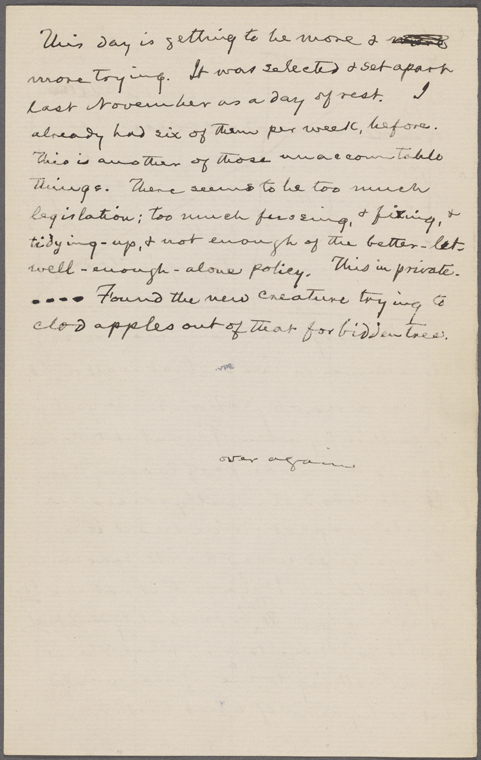 This day is getting to be more &
more trying. It was selected & set apart
last November as a day of rest. I
already had six of them per week, before.
This is another of those unaccountable
things. There seems to be too much
legislation; too much fussing, & fixing, &
tidying-up, & not enough of the better-let-
well-enough-alone policy. This in private.
.... Found the new creature trying to
clod apples out of that forbidden tree.
over again